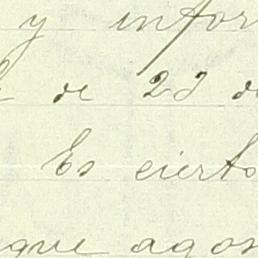 y infor
de 23 de
Es cierto
que agos